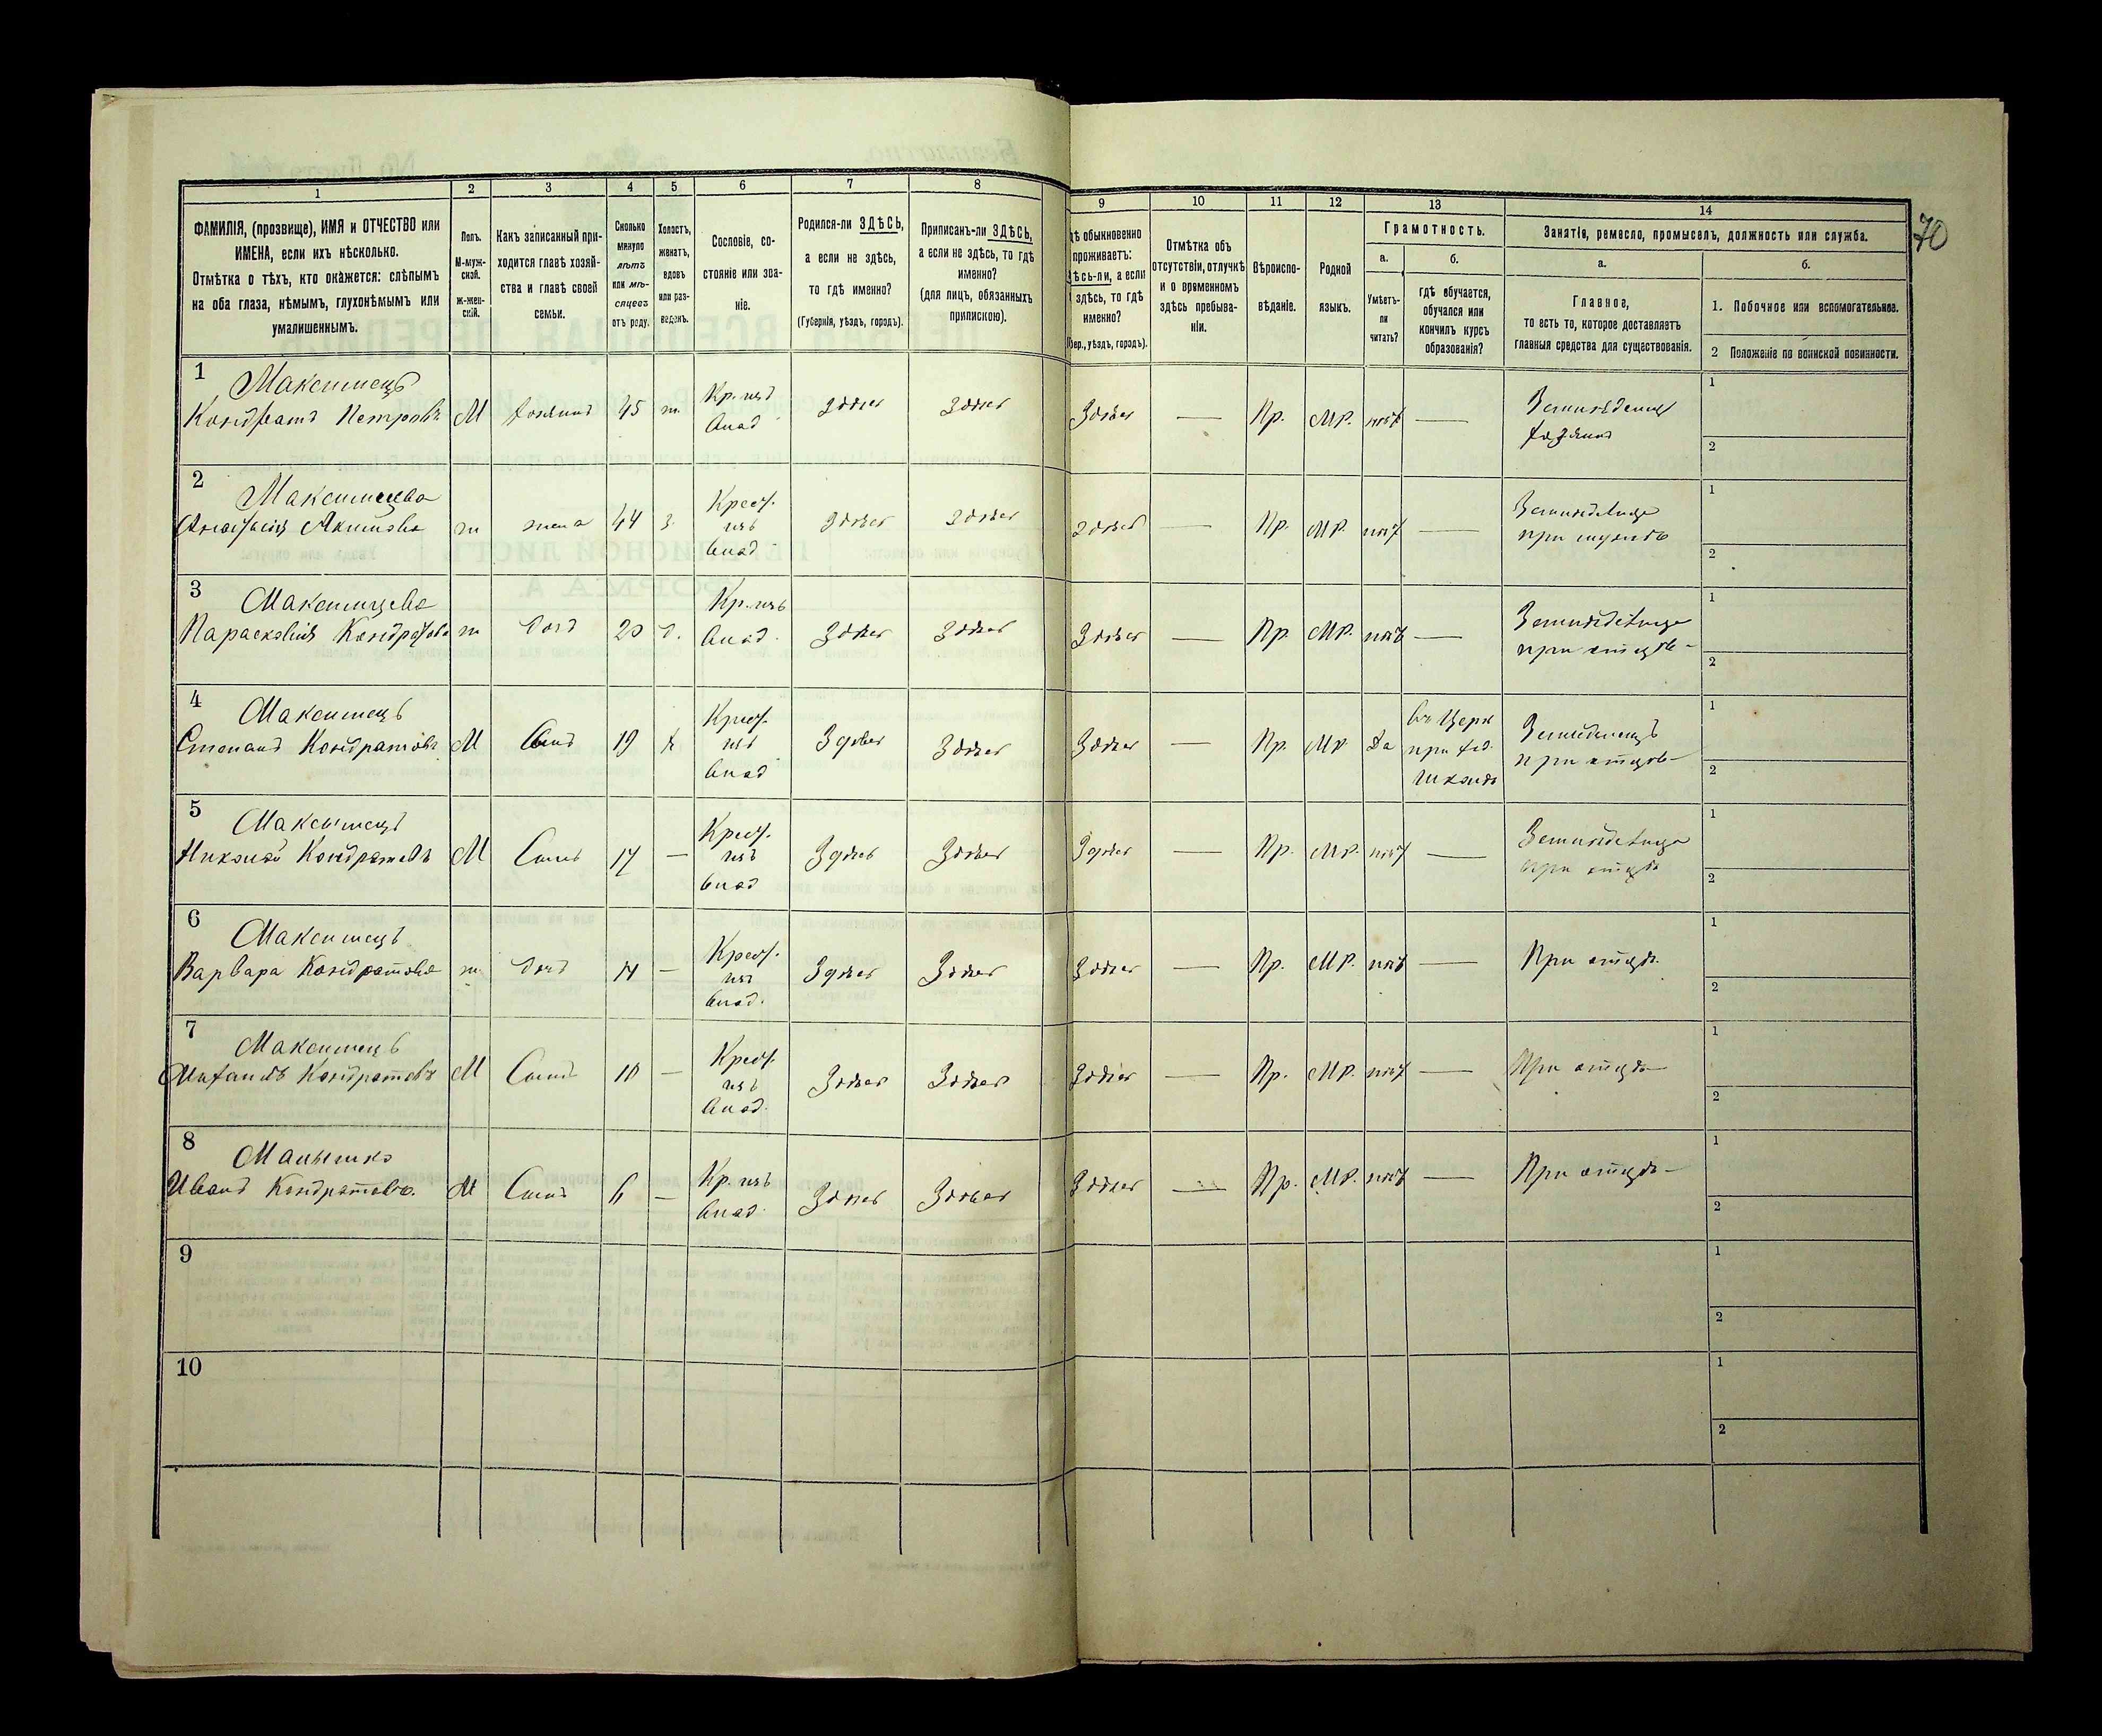 70
1 2 3 4 5 6 7 8 9 10 11 12 13 14
ФАМИЛІЯ, (прозвище), ИМЯ и ОТЧЕСТВО или
ИМЕНА, если ихъ нѣсколько.
Отмѣтка о тѣхъ, кто окажется: слѣпымъ
на оба глаза, нѣмымъ, глухонѣмымъ или
умалишеннымъ.
Полъ.
М-муж-
ской.
ж-жен-
скій.
Какъ записанный при-
ходится главѣ хозяй-
ства и главѣ своей
семьи.
Сколько
минуло
лѣтъ
или мѣ-
сяцевъ
отъ роду.
Холостъ,
женатъ,
вдовъ
или раз-
веденъ.
Сословіе, со-
стояніе или зва-
ніе.
Родился-ли ЗДѢСЬ,
а если не здѣсь,
то гдѣ именно?
(Губернія, уѣздъ, городъ).
Приписанъ-ли ЗДѢСЬ,
а если не здѣсь, то гдѣ
именно?
(для лицъ, обязанныхъ
припискою).
дѣ обыкновенно
проживаетъ:
дѣсь-ли, а если
здѣсь, то гдѣ
именно?
бер., уѣздъ, городъ).
Отмѣтка объ
отсутствіи, отлучкѣ
и о временномъ
здѣсь пребыва-
ніи.
Вѣроиспо-
вѣданіе.
Родной
языкъ.
Грамотность.
а.
Умѣетъ-
ли
читать?
б.
гдѣ обучается,
обучался или
кончилъ курсъ
образованія?
Занятіе, ремесло, промыселъ, должность или служба.
а.
Главное,
то есть то, которое доставляетъ
главныя средства для существованія.
б.
1. Побочное или вспомогательное.
2 Положеніе по воинской повинности.
1 Максимецъ
Кондратъ Петровъ М хозяинъ 45 ж. Кр. изъ влад здѣсь здѣсь здѣсь — Пр. МР. нѣтъ — Земледѣлецъ хозяинъ 1
2
2 Максимцева
Акимова ж жена 44 з. Крест. изъ влад здѣсь здѣсь здѣсь — Пр. МР. нѣтъ — при мужѣ 1
2
3 Максимцева
Параскевія Кондратова ж дочь 20 д. Кр. изъ влад. здѣсь здѣсь здѣсь — Пр МР. нѣтъ — при отцѣ 1
2
4 Максимецъ
Степанъ Кондратовъ М Сынъ 19 х Крест. изъ влад здѣсь здѣсь здѣсь — Пр. МР да въ Церк при школѣ Земледѣлецъ при отцѣ 1
2
5 Максимецъ
Николай Кондратовъ М Сынъ — Крест. изъ влад здѣсь здѣсь здѣсь — Пр. МР. нѣтъ — при отцѣ 1
2
6 Максимецъ
Варвара Кондратова ж дочь — Крест. изъ влад. здѣсь здѣсь здѣсь — Пр. МР. нѣтъ — При отцѣ 1
2
7 Максимецъ
Михаилъ Кондратовъ М Сынъ 10 — Крест. изъ влад. здѣсь здѣсь здѣсь — Пр. МР. нѣтъ — При отцѣ 1
2
8
Иванъ Кондратовъ. М Сынъ 6 — Кр. изъ влад. здѣсь здѣсь здѣсь — Пр. МР. нѣтъ — При отцѣ 1
2
9 1
2
10 1
2